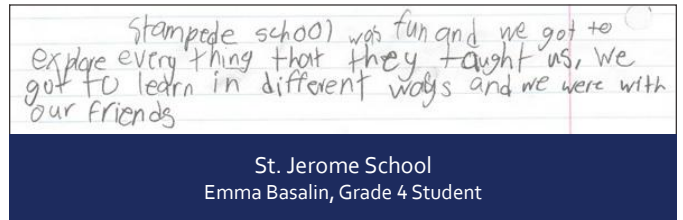 Stampede school was fun and we got to
explore every thing that they taught us, we
got to learn in different ways and we were with
our friends
St. Jerome School
Emma Basalin, Grade 4 Student